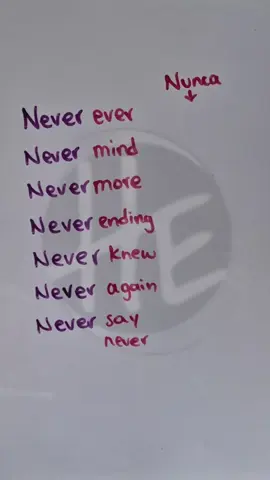 Nunca
↓
Never ever
Never mind
Never more
Never ending
Never knew
Never again
Never say
never
HE